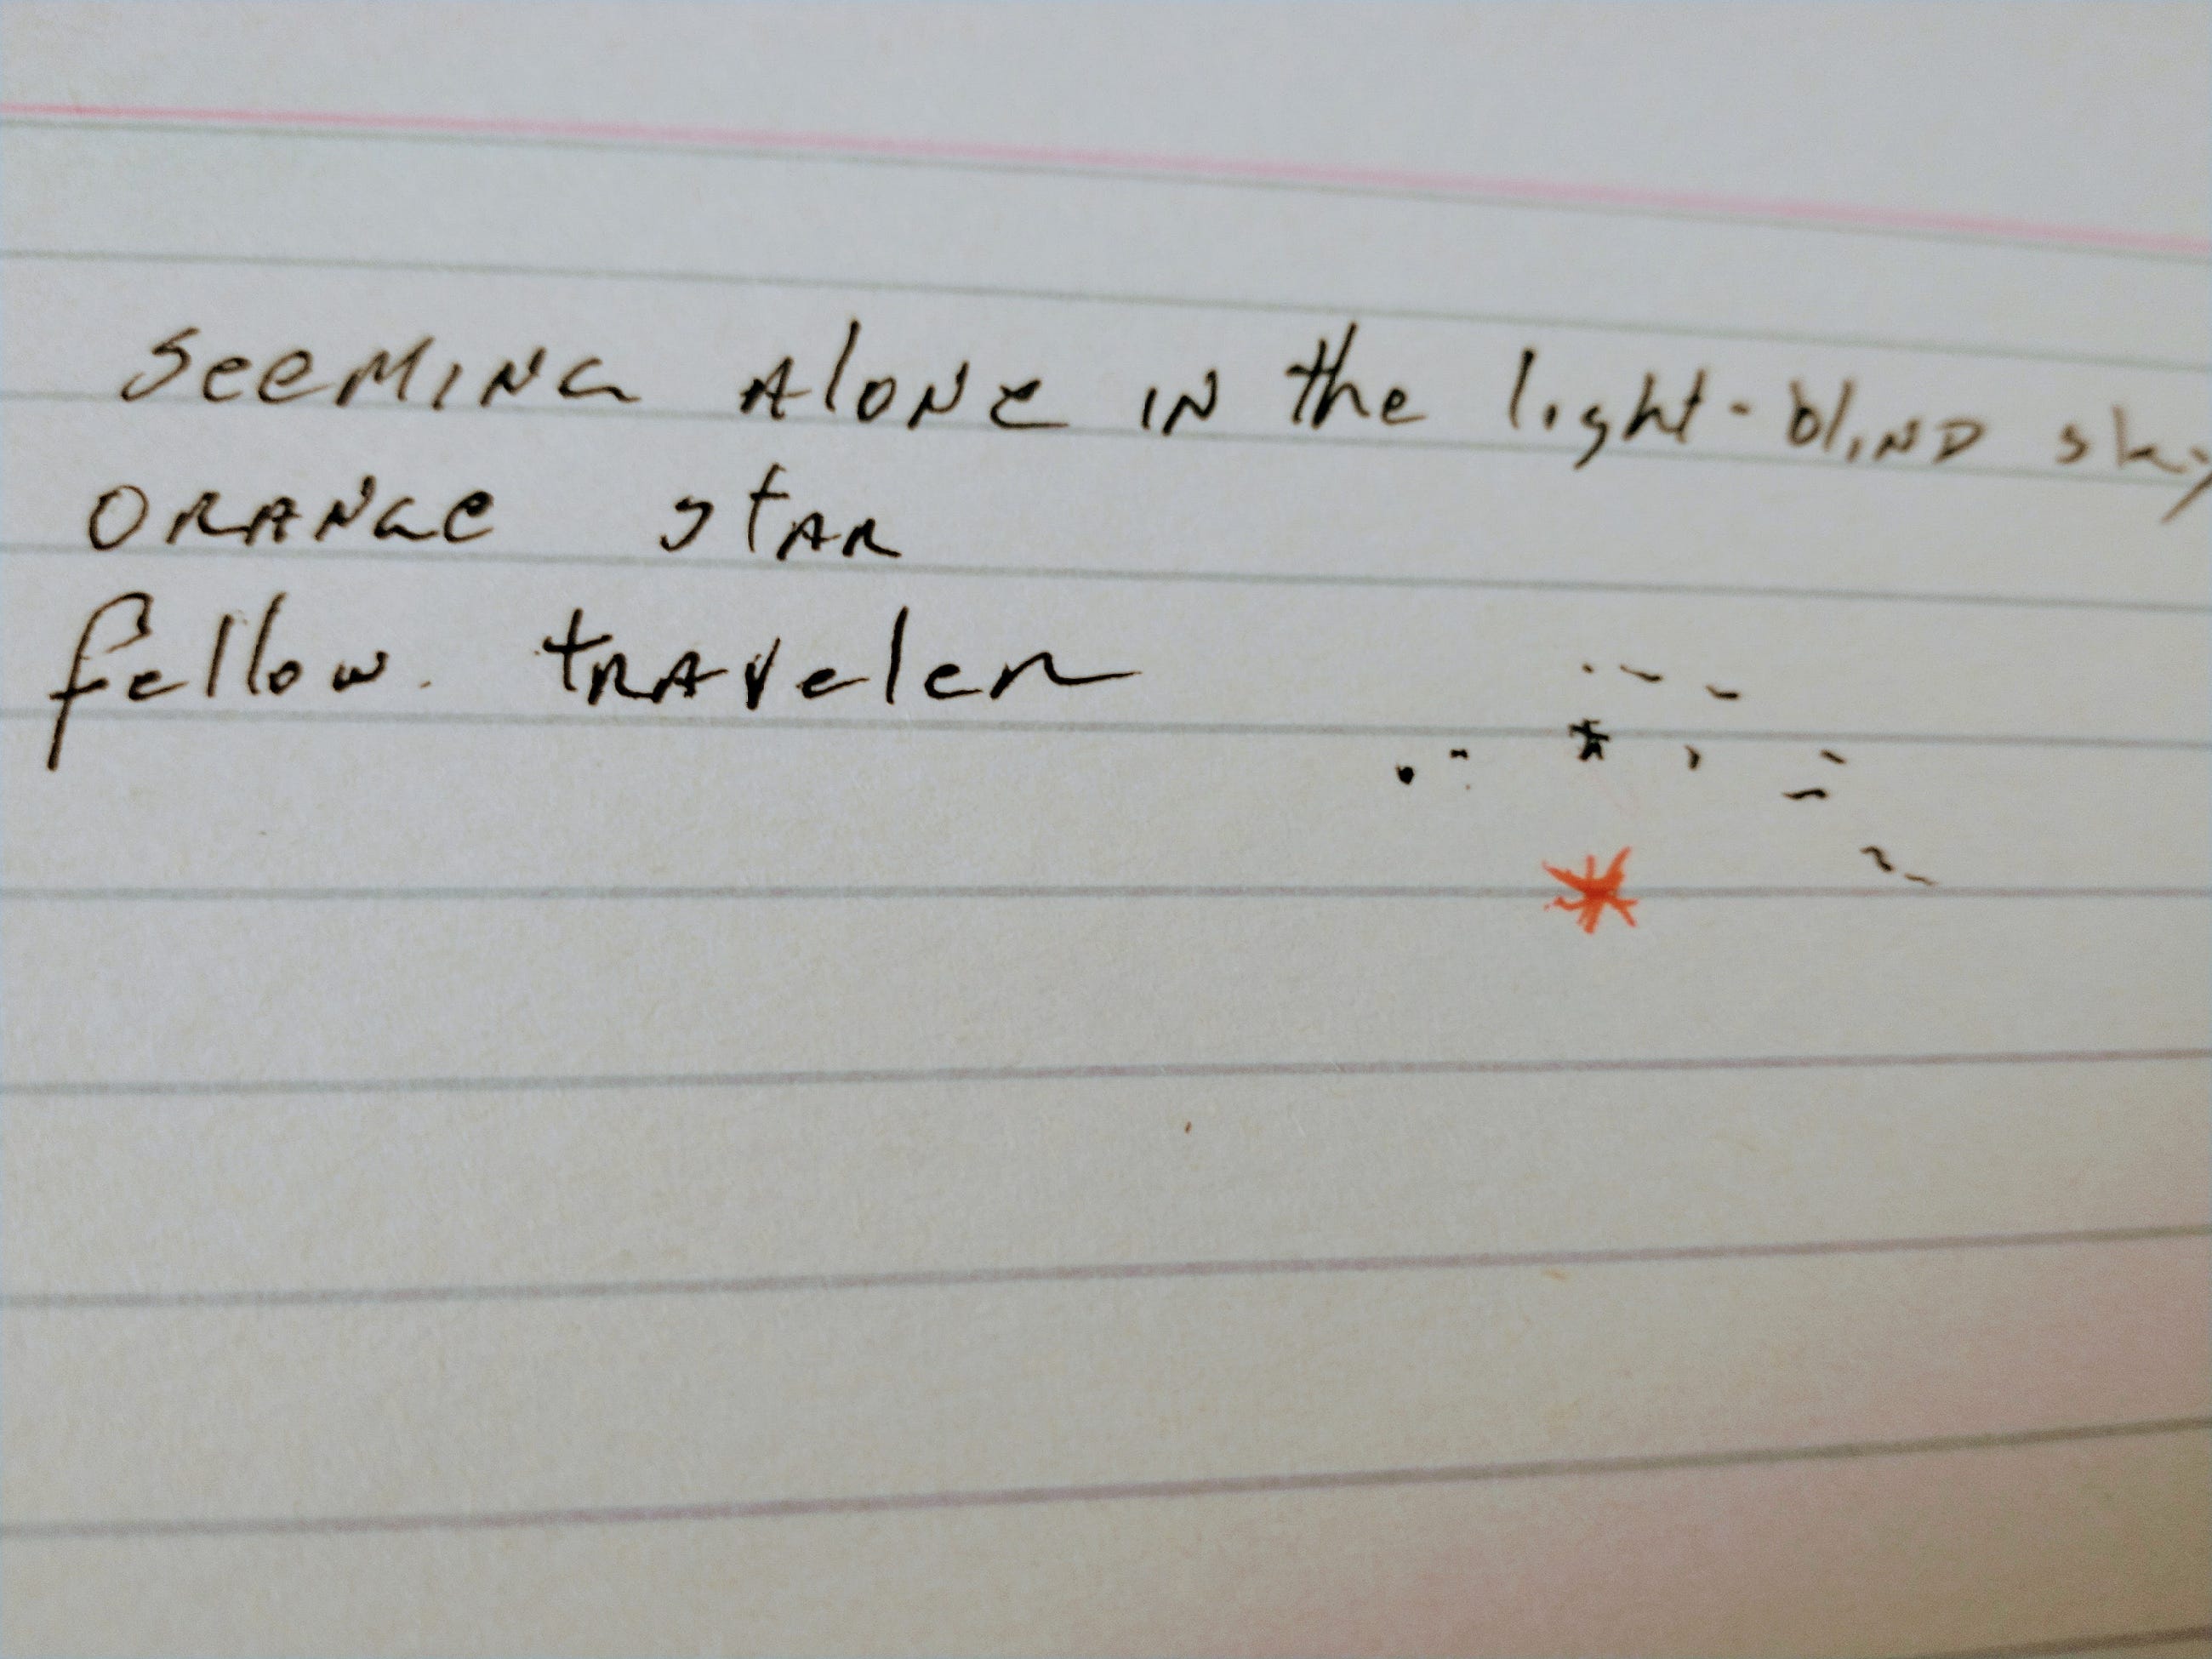 seeming alone in the light-blind sky
orange star
fellow traveler